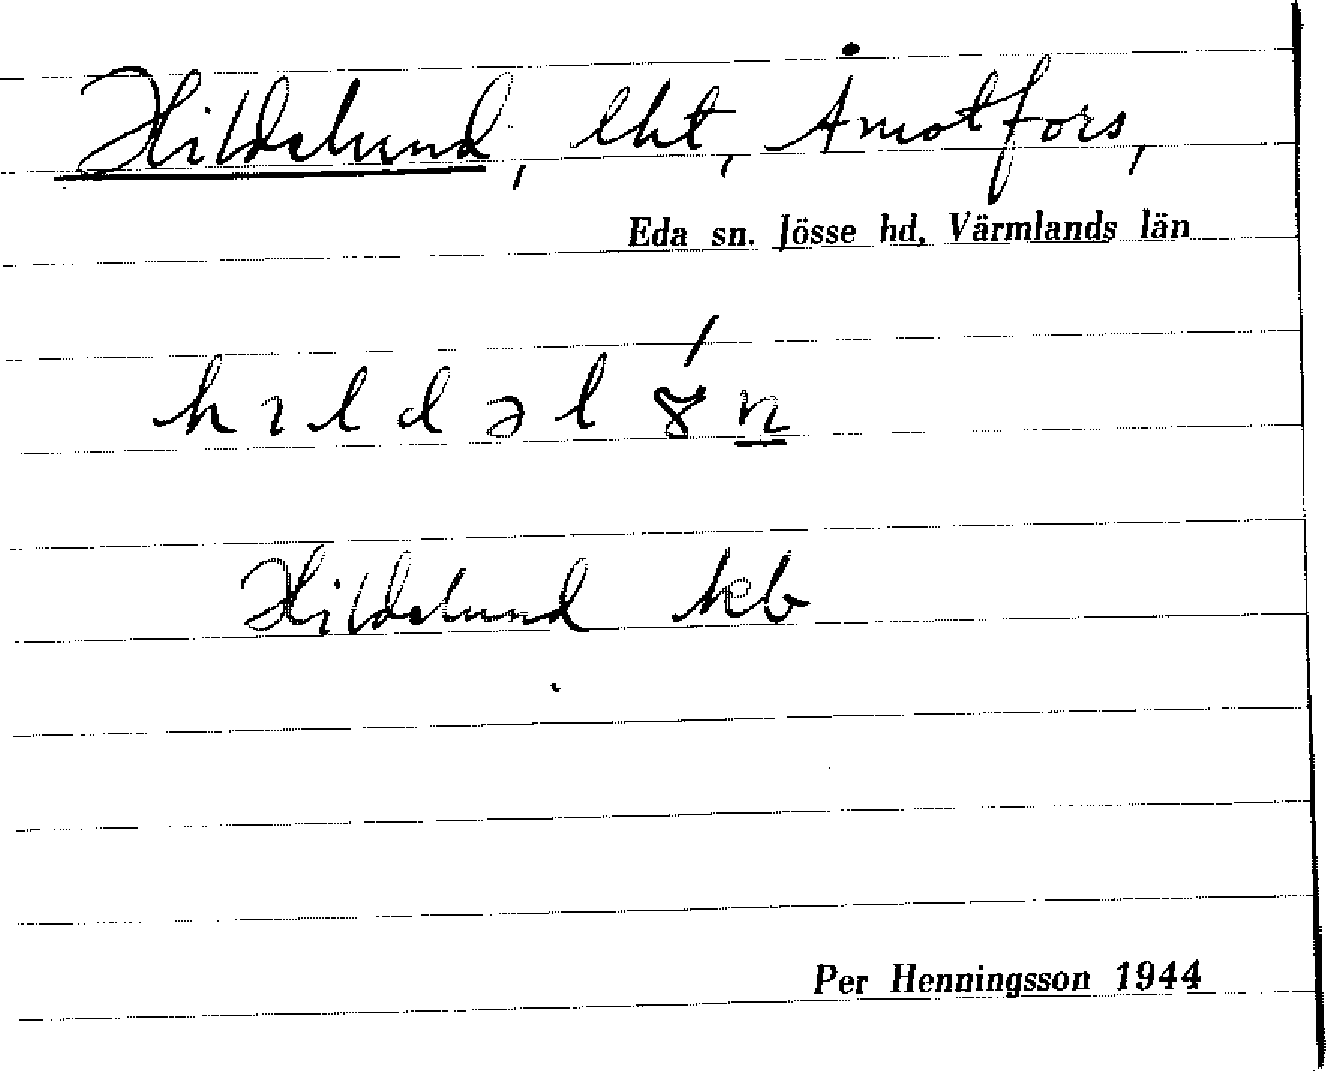 Hildelund, lht, Åmotfors,
Eda sn. Jösse hd, Värmlands län
hıldəl8́n̲
Hildelund kb
Per Henningsson 1944